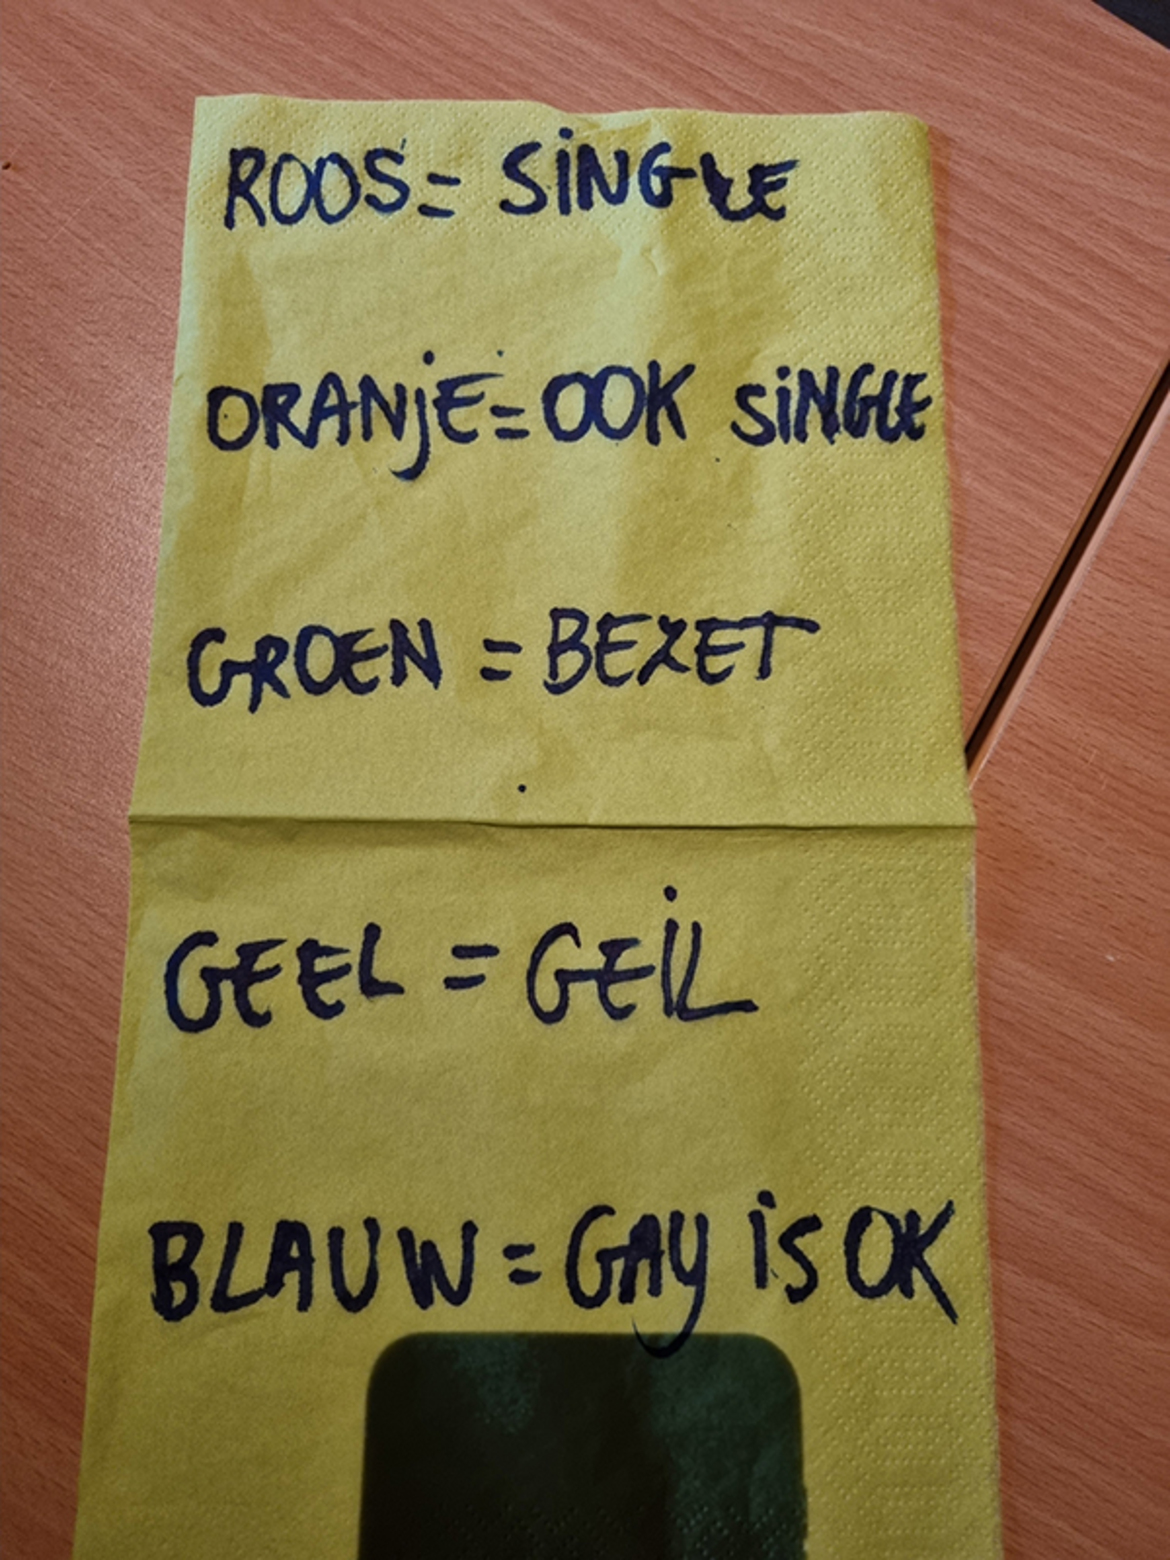 ROOS = SiNGLE
ORANjE = OOK SiNGLE
GROEN = BEZET
GEEL = GEiL
BLAUW = GAY iS OK